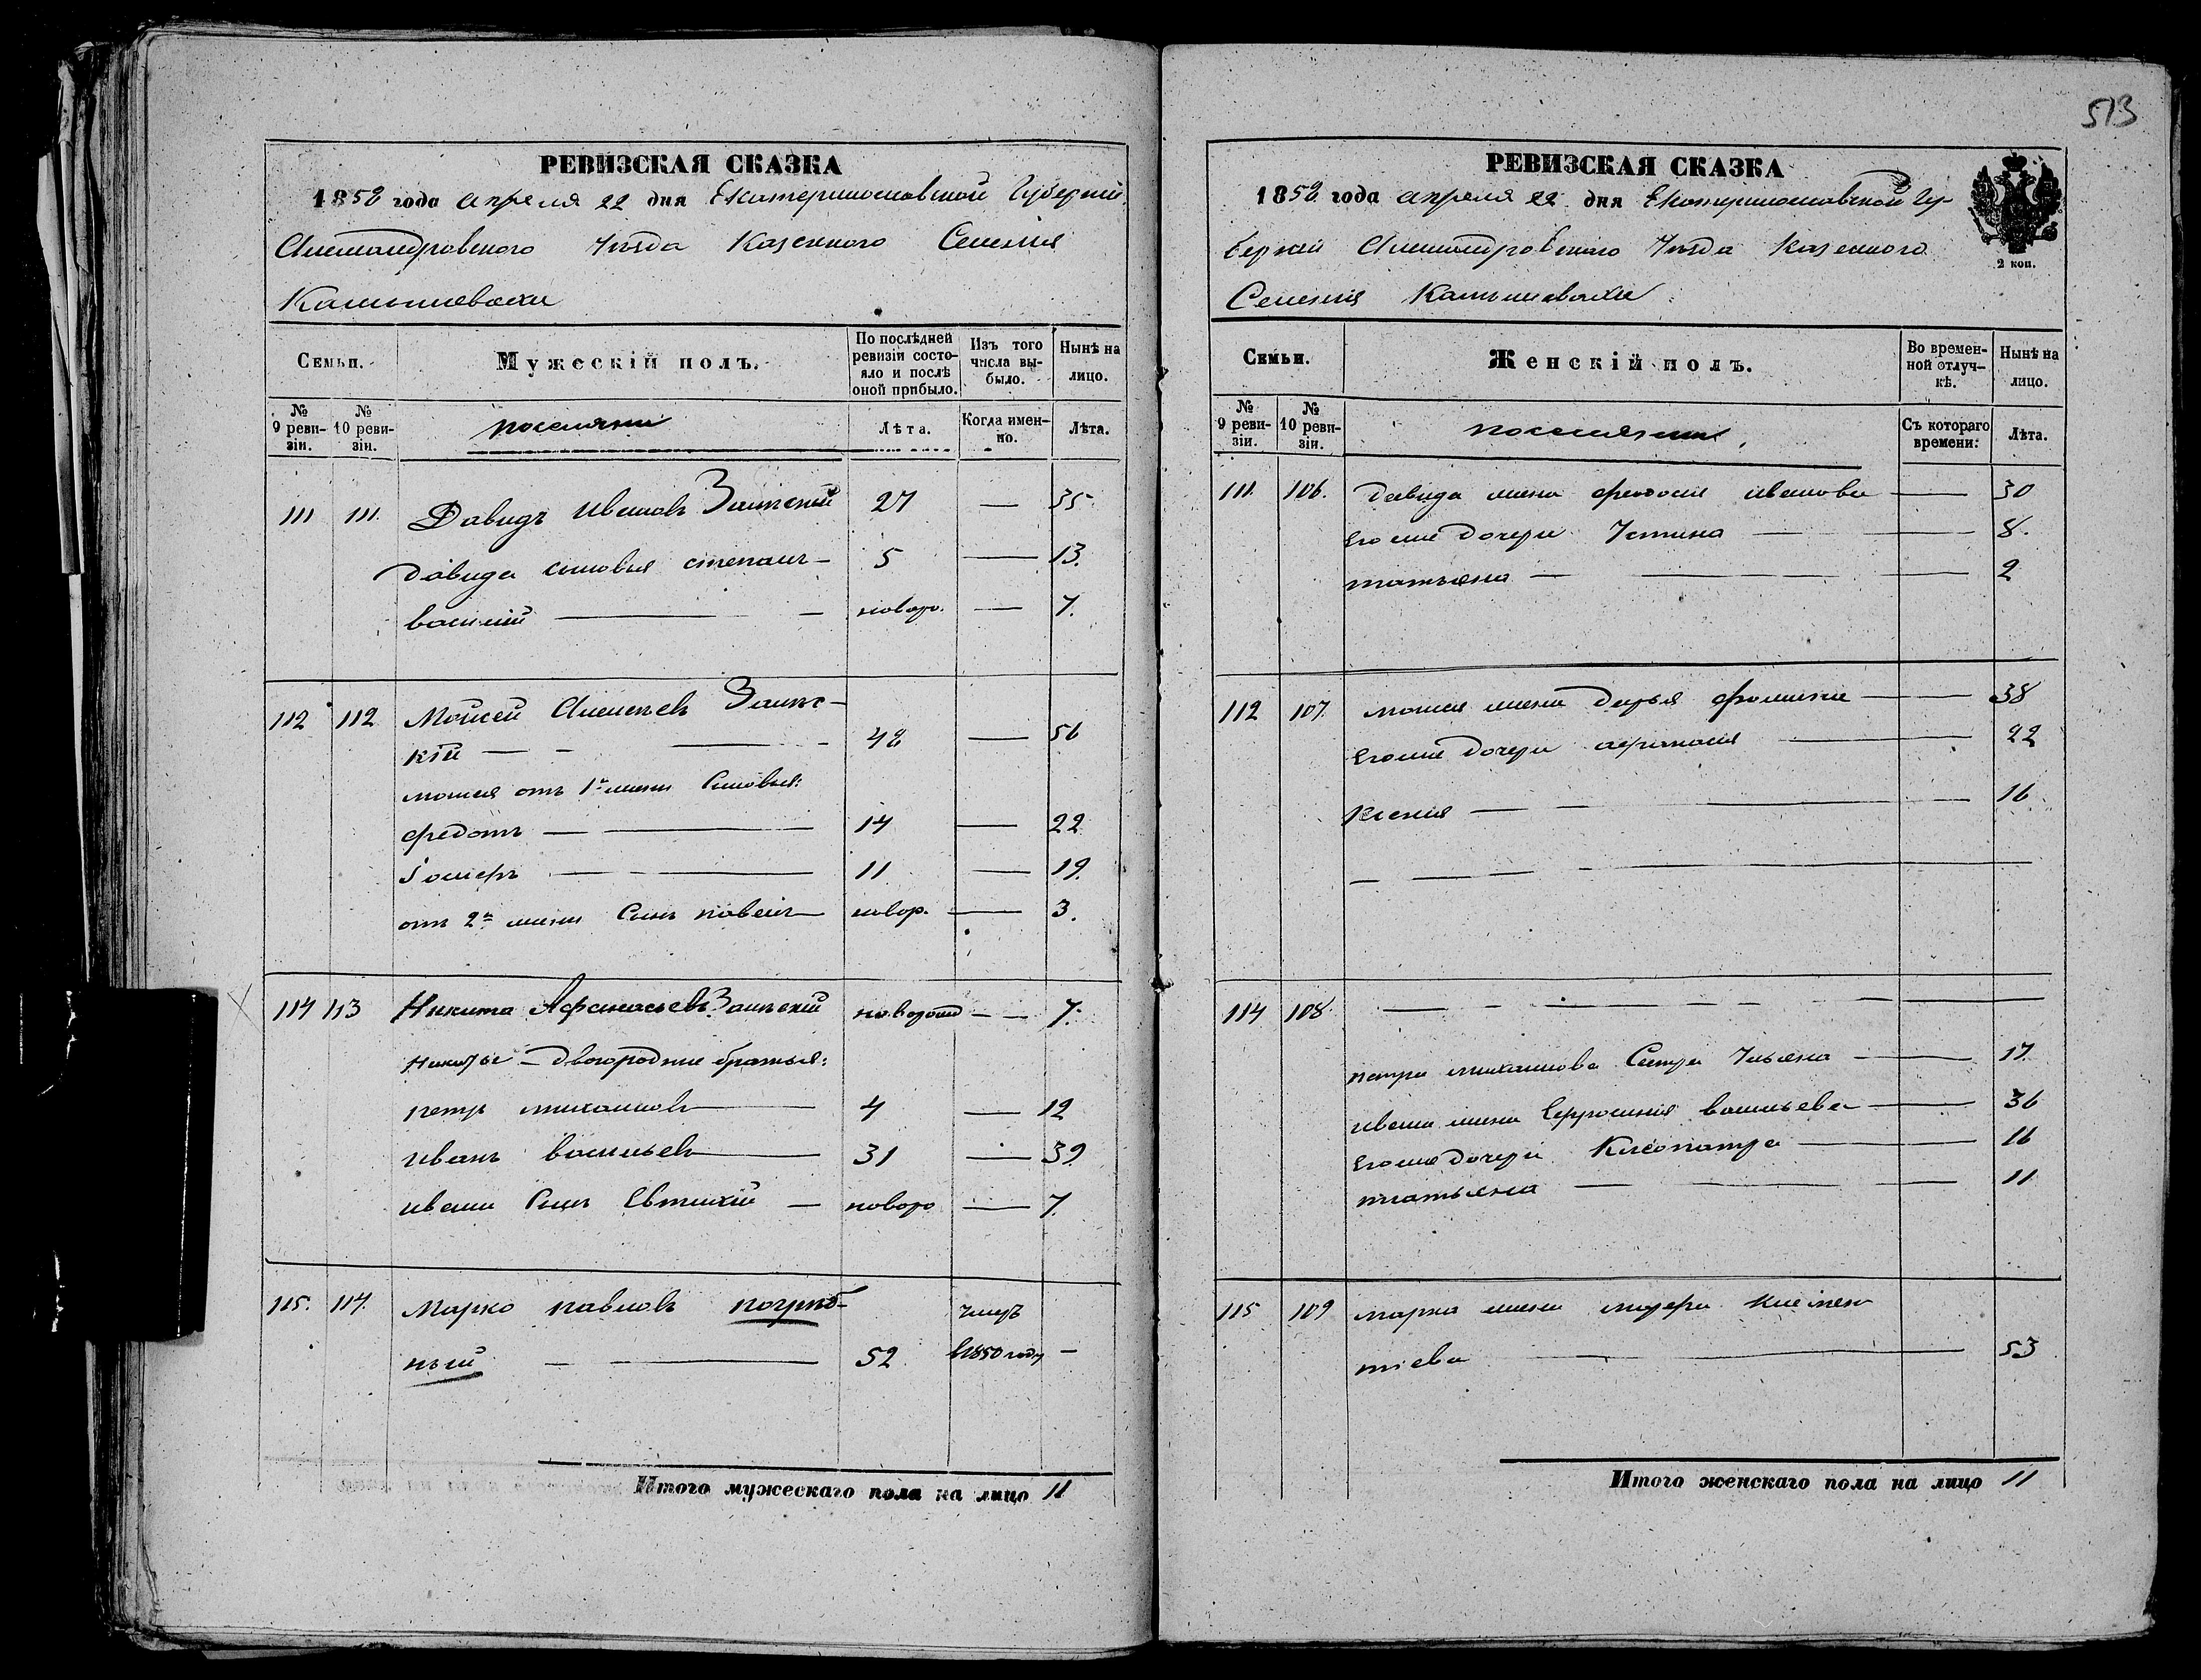 513
РЕВИЗСКАЯ СКАЗКА
1858 года апреля 22 дня Екатеринославской Губерніи
Александровского Уѣзда Казенного Селенія
Камышевахи
Семьи.
Мужескій полъ.
По послѣдней ревизіи состояло и послѣ оной прибыло.
Изъ того числа выбыло.
Нынѣ на лицо.
№ 9 ревизіи.
№ 10 ревизіи.
поселяни
Лѣта.
Когда именно.
Лѣта.
111 111. Давидъ Ивановъ Заинскій 27 — 35
Давида сыновья степанъ — 5 — 13.
василій — новоро. — 7.
112 112 Мойсей Алексѣев Заинс-
кій — 48 — 56
мойсея отъ 1й жены Сыновья:
федотъ — 14 — 22
— 11 — 19.
отъ 2й жены Сынъ павелъ — новор. — 3.
114 113 Никита Афанасьевъ Заинскій новорожд — 7.
Никиты — двоюродние братья:
петръ михайловъ — 4 — 12
иванъ васильевъ — 31 — 39
ивана Сынъ Евтихій — новоро — 7.
115. 114. Марко павловъ погриб-
умеръ
ный — 52 в 1850 году —
Итого мужескаго пола на лицо 11
РЕВИЗСКАЯ СКАЗКА
1858 года апреля 22 дня Екатеринославской Гу-
берніи Александровского Уѣзда Казенного
Селенія Камышевахи
2 коп.
Семьи.
Женскій полъ.
Во временной отлучкѣ.
Нынѣ на лицо.
№ 9 ревизіи.
№ 10 ревизіи.
поселянки
Съ котораго времени.
Лѣта.
111. 106. Давида жена феодосія иванова — 30
Его же дочери Устина — 8.
татьяна — 2
112 107. мойсея жена Дарья фомина — 38
Его же дочери афанасія — 22
Ксенія — 16
114 108. —
петра михайлова Сестра Ульяна — 17.
ивана жена Ефросинія васильева — 36
Его же дочери Клеопатра — 16
татьяна — 11
115 109 марка жена Клемен
тіева — 53
Итого женскаго пола на лицо 11